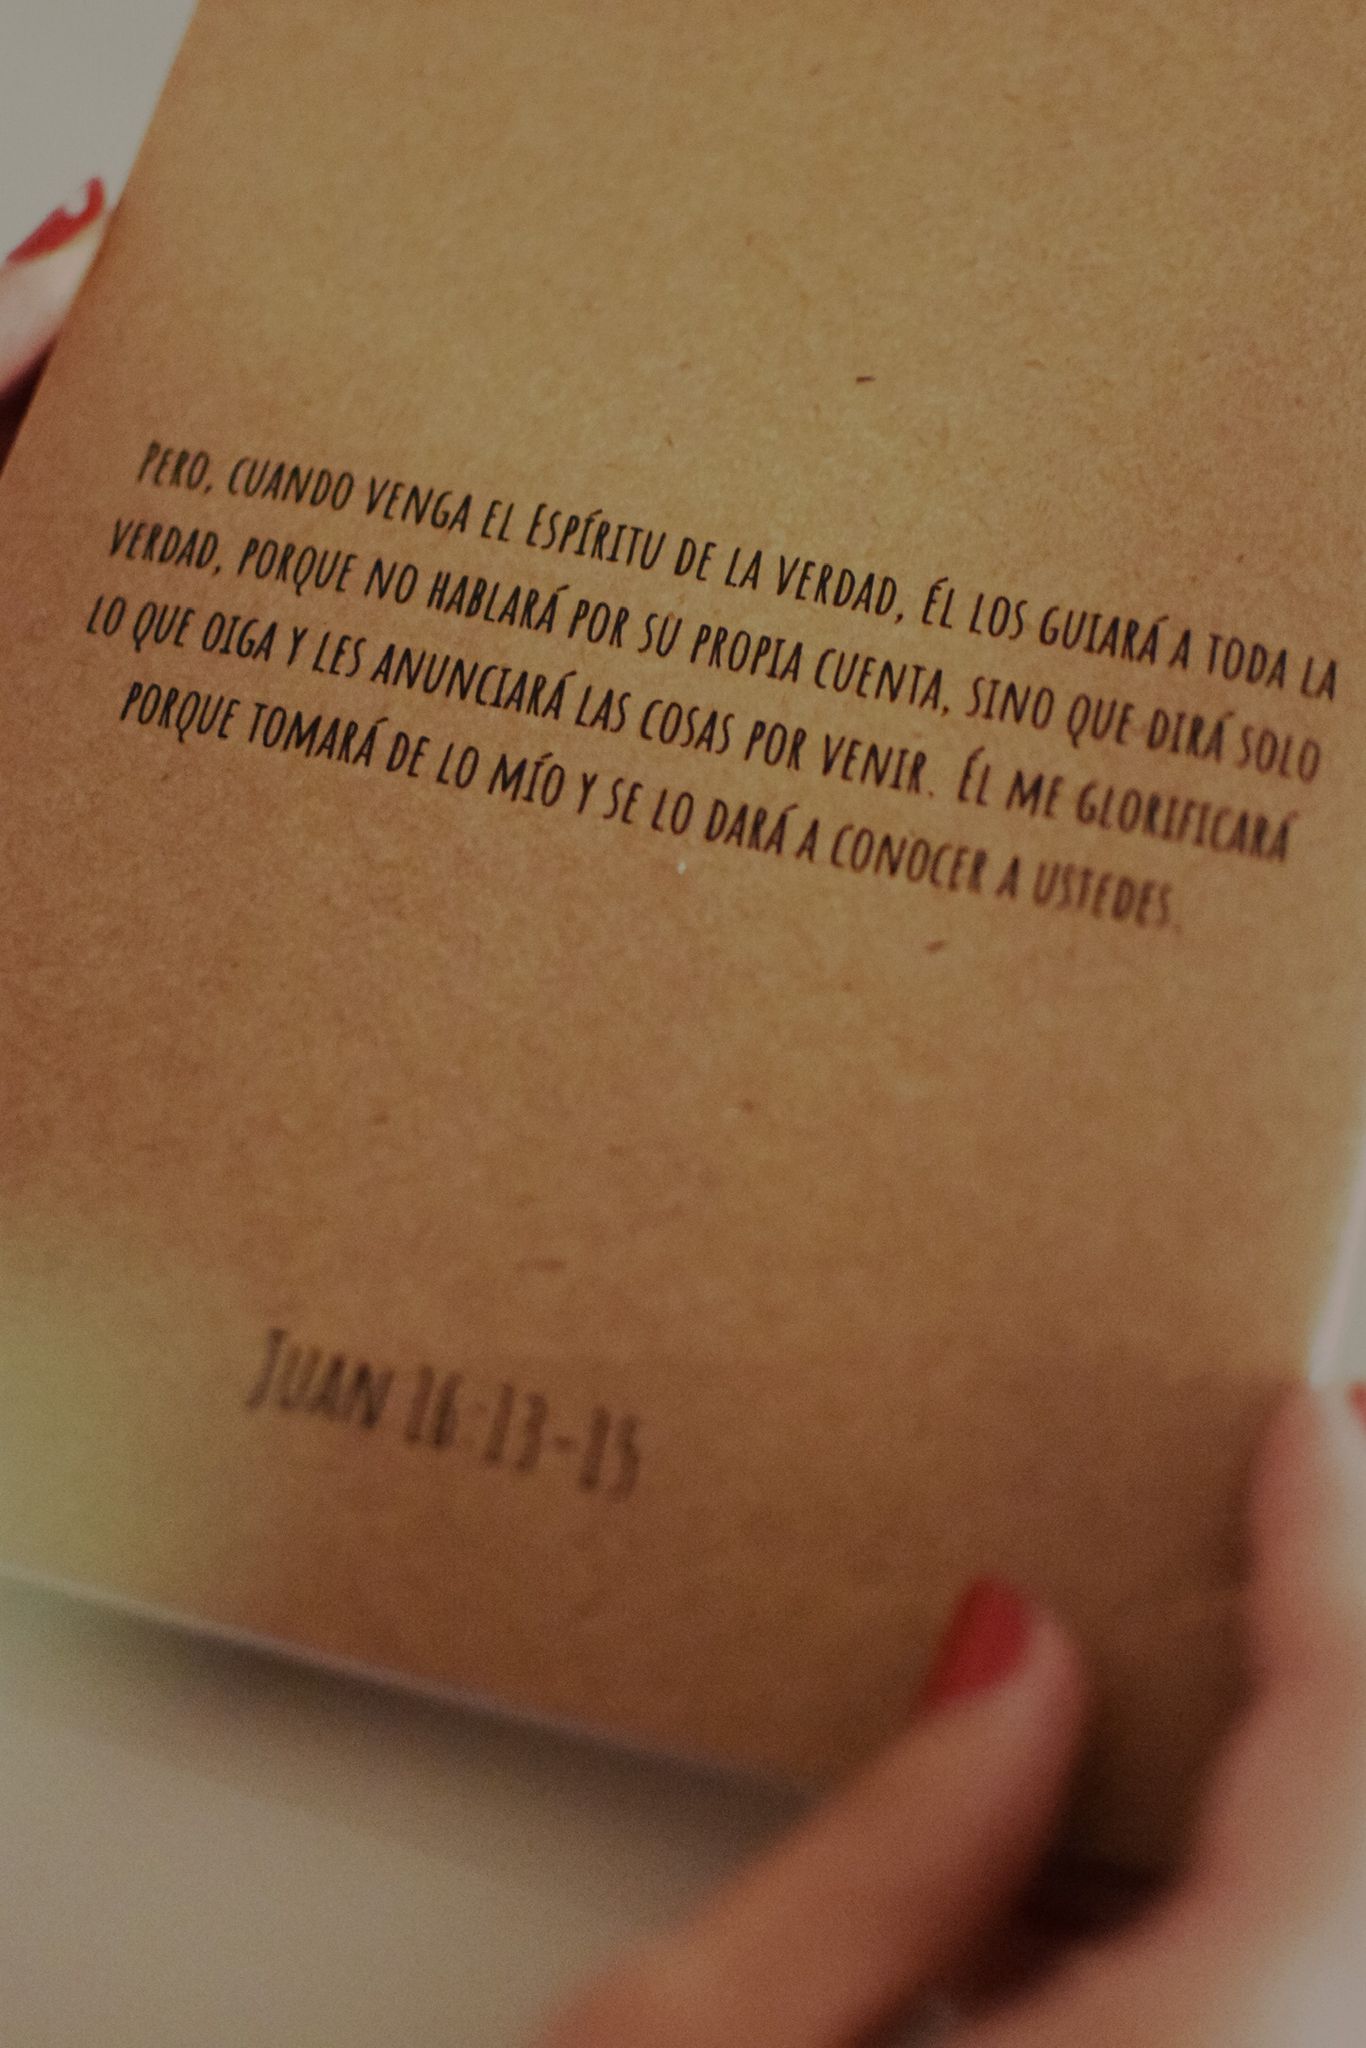 Pero, cuando venga el Espíritu de la verdad, él los guiará a toda la
verdad, porque no hablará por su propia cuenta, sino que dirá solo
lo que oiga y les anunciará las cosas por venir. Él me glorificará
porque tomará de lo mío y se lo dará a conocer a ustedes.
Juan 16:13-15